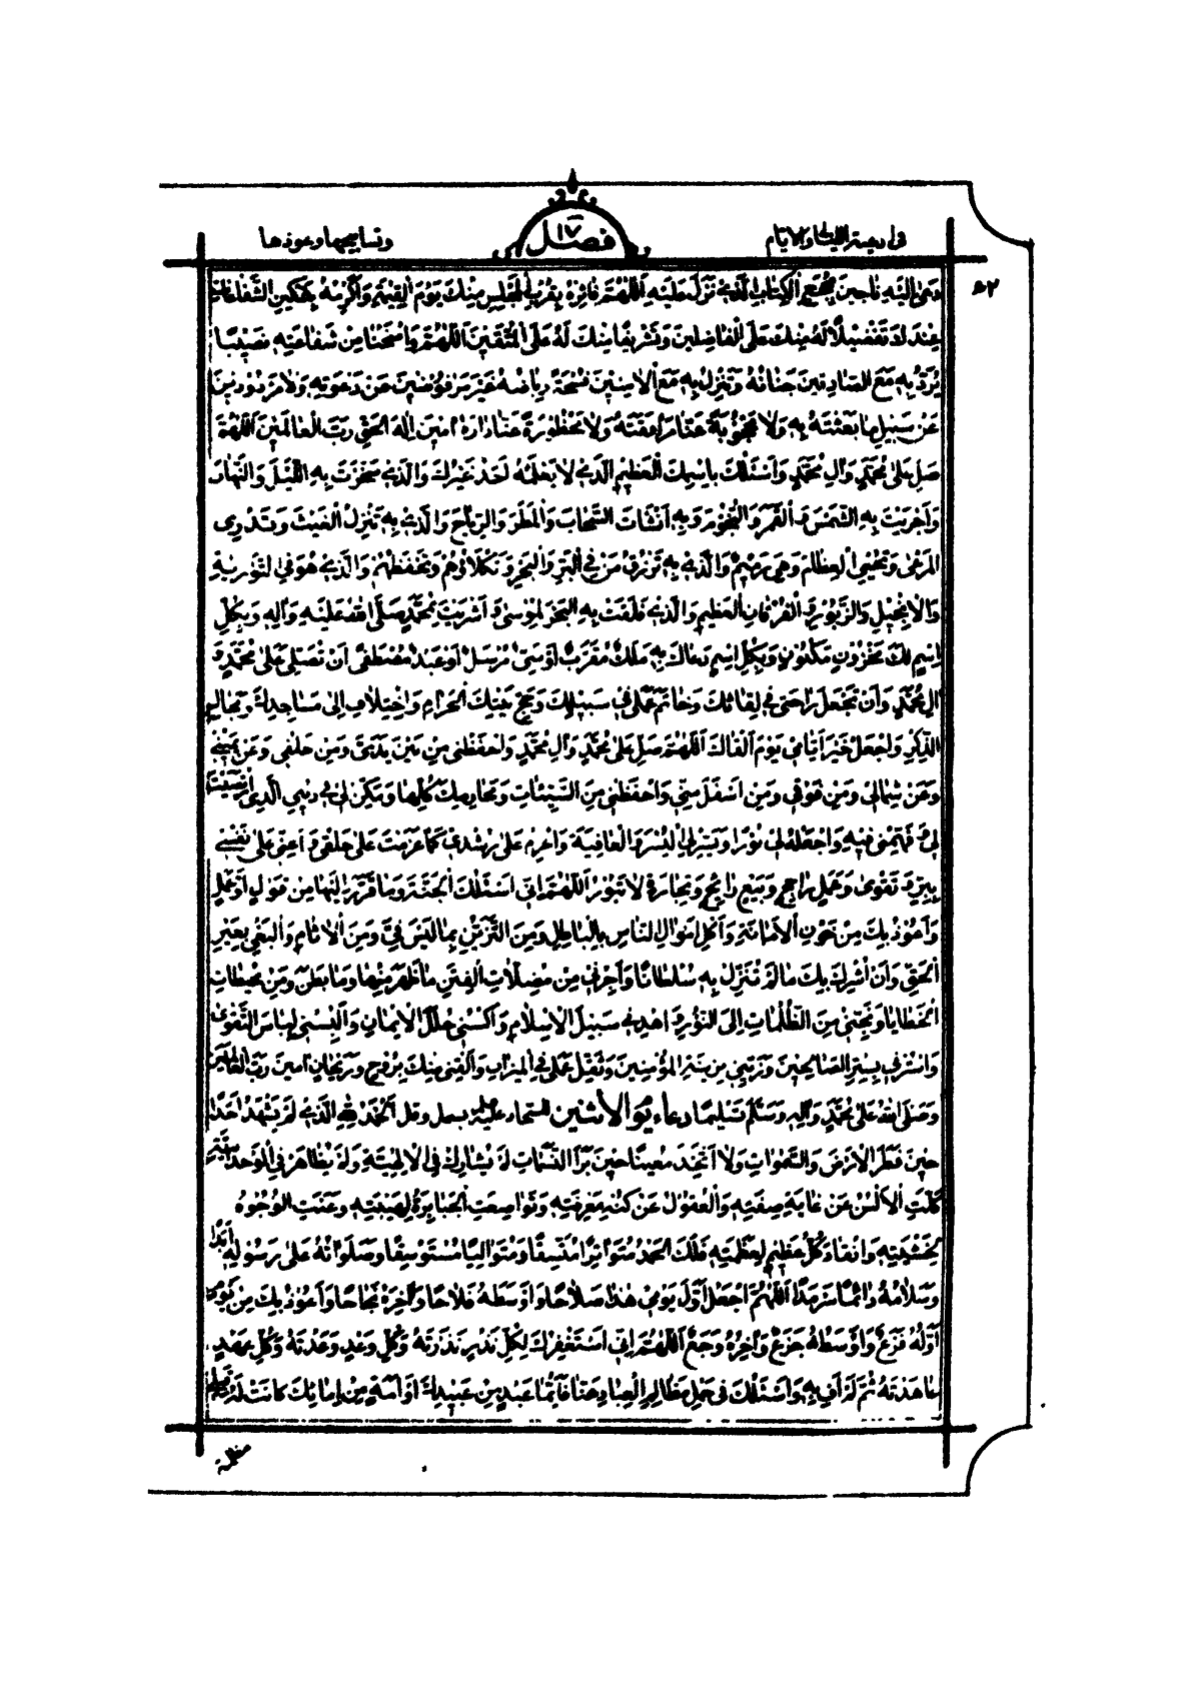 في ادعية الليالي والايام
فصل ١٧
وتسابيحها وعوذها
٦٢
دعى اليه ناجين بمجمع الكتاب الذى نزل عليه اللهم فائزة بقرب المجلس منك يوم القيمة واكرمه بتمكين الشفاعات
عندك تفضيلا له منك على الفاضلين وتشريفا منك له على المتقين اللهم وامنحنا من شفاعته نصيبا
نرد به مع الصادقين جنانه وننزل به مع الامنين فسحة رياضه غير مرفوضين عن دعوته ولا مردودين
عن سبيل ما بعثته به ولا محجوبة عنا مرافقته ولا محظورة عنا داره امين اله الحق رب العالمين اللهم
صل على محمد وال محمد واسئلك باسمك العظيم الذى لا يعلمه احد غيرك والذى سخرت به الليل والنهار
واجريت به الشمس والقمر والنجوم وبه انشات السحاب والمطر والرياح والذى به تنزل الغيث وتذرى
المرعى وتحيى العظام وهى رميم والذى به ترزق من فى البر والبحر وتكلاؤهم وتحفظهم والذى هو فى التورية
والانجيل والزبور والفرقان العظيم والذى فلقت به البحر لموسى واسريت بمحمد صلى الله عليه واله وبكل
اسم لك مخزون مكنون وبكل اسم دعاك به ملك مقرب او نبى مرسل او عبد مصطفى ان تصلى على محمد و
ال محمد وان تجعل راحتى فى لقائك وخاتم عملى فى سبيلك وحج بيتك الحرام واختلاف الى مساجدك ومجالس
الذكر واجعل خير ايامى يوم القاك اللهم صل على محمد وال محمد واحفظنى من بين يدى ومن خلفى وعن يمينى
وعن شمالى ومن فوقى ومن اسفل منى واحفظنى من السيئات ومحارمك كلها ومكن لى فى دينى الذى ارتضيت
لى وفهمنى فيه واجعله لى نورا ويسر لى اليسر والعافية واعزم على رشدى كما عزمت على خلقى واعنى على نفسى
ببر وتقوى وعمل راجح وبيع رابح وتجارة لا تبور اللهم انى اسئلك الجنة وما قرب اليها من قول او عمل
واعوذ بك من خون الامانة واكل اموال الناس بالباطل ومن التزين بما ليس فى ومن الاثام والبغى بغير
الحق وان اشرك بك ما لم تنزل به سلطانا واجرنى من مضلات الفتن ما ظهر منها وما بطن ومن محيطات
الخطايا ونجنى من الظلمات الى النور واهدنى سبيل الاسلام واكسنى حلل الايمان والبسنى لباس التقوى
واسترنى بستر الصالحين وزينى بزينة المؤمنين وثقل عملى فى الميزان والقنى منك بروح وريحان امين رب العالمين
وصلى الله على محمد واله وسلم تسليما دعاء يوم الاثنين للسجاد عليه بسمل وقل الحمد لله الذى لم يشهد احدا
حين فطر الارض والسموات ولا اتخذ معينا حين برا النسمات لم يشارك فى الالهية ولم يظاهر فى الوحدانية
كلت الالسن عن غاية صفته والعقول عن كنه معرفته وتواضعت الجبابرة لهيبته وعنت الوجوه
لخشيته وانقاد كل عظيم لعظمته فلك الحمد متواترا متسقا ومتواليا مستوسقا وصلواته على رسوله ابدا
وسلامه دائما سرمدا اللهم اجعل اول يومى هذا صلاحا واوسطه فلاحا واخره نجاحا واعوذ بك من يوم
اوله فزع واوسطه جزع واخره وجع اللهم انى استغفرك لكل نذر نذرته وكل وعد وعدته وكل عهد
عاهدته ثم لم اف به واسئلك فى حمل مظالم العباد عنا فايما عبد من عبيدك او امة من امائك كانت له قبلى
مظلمة